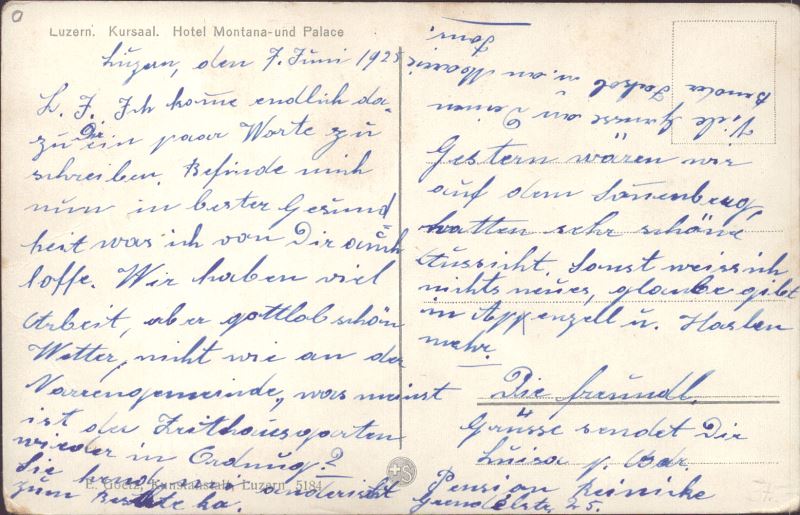 Luzern. Kursaal. Hotel Montana-und Palace
Luzern, den 7. Juni 1925
L. J. Ich kome endlich da-
zu Dir ein paar Worte zu
schreiben. Befinde mich
nun in bester Gesund
heit was ich von Dir auch
hoffe. Wir haben viel
Arbeit, aber gottlob schön
Wetter, nicht wie an der
Narrengemeinde, was meinst
ist der Zeithausgarten
wieder in Ordnung?
Sie
zum Beste ha.
E. Goetz, Kunstanstalt, Luzern. 5184
Viele Grüsse an Deinen
Bruder Jakob u. an Marie
Gestern wären wir
auf dem Sonenberg,
hatten sehr schöne
Aussicht. Sonst weiss ich
nichts neues, glaube gibt
in Appenzell u. Haslen
mehr.
Die freundl.
Grüsse sendet Dir
Luisa
Pension Reinicke
25.